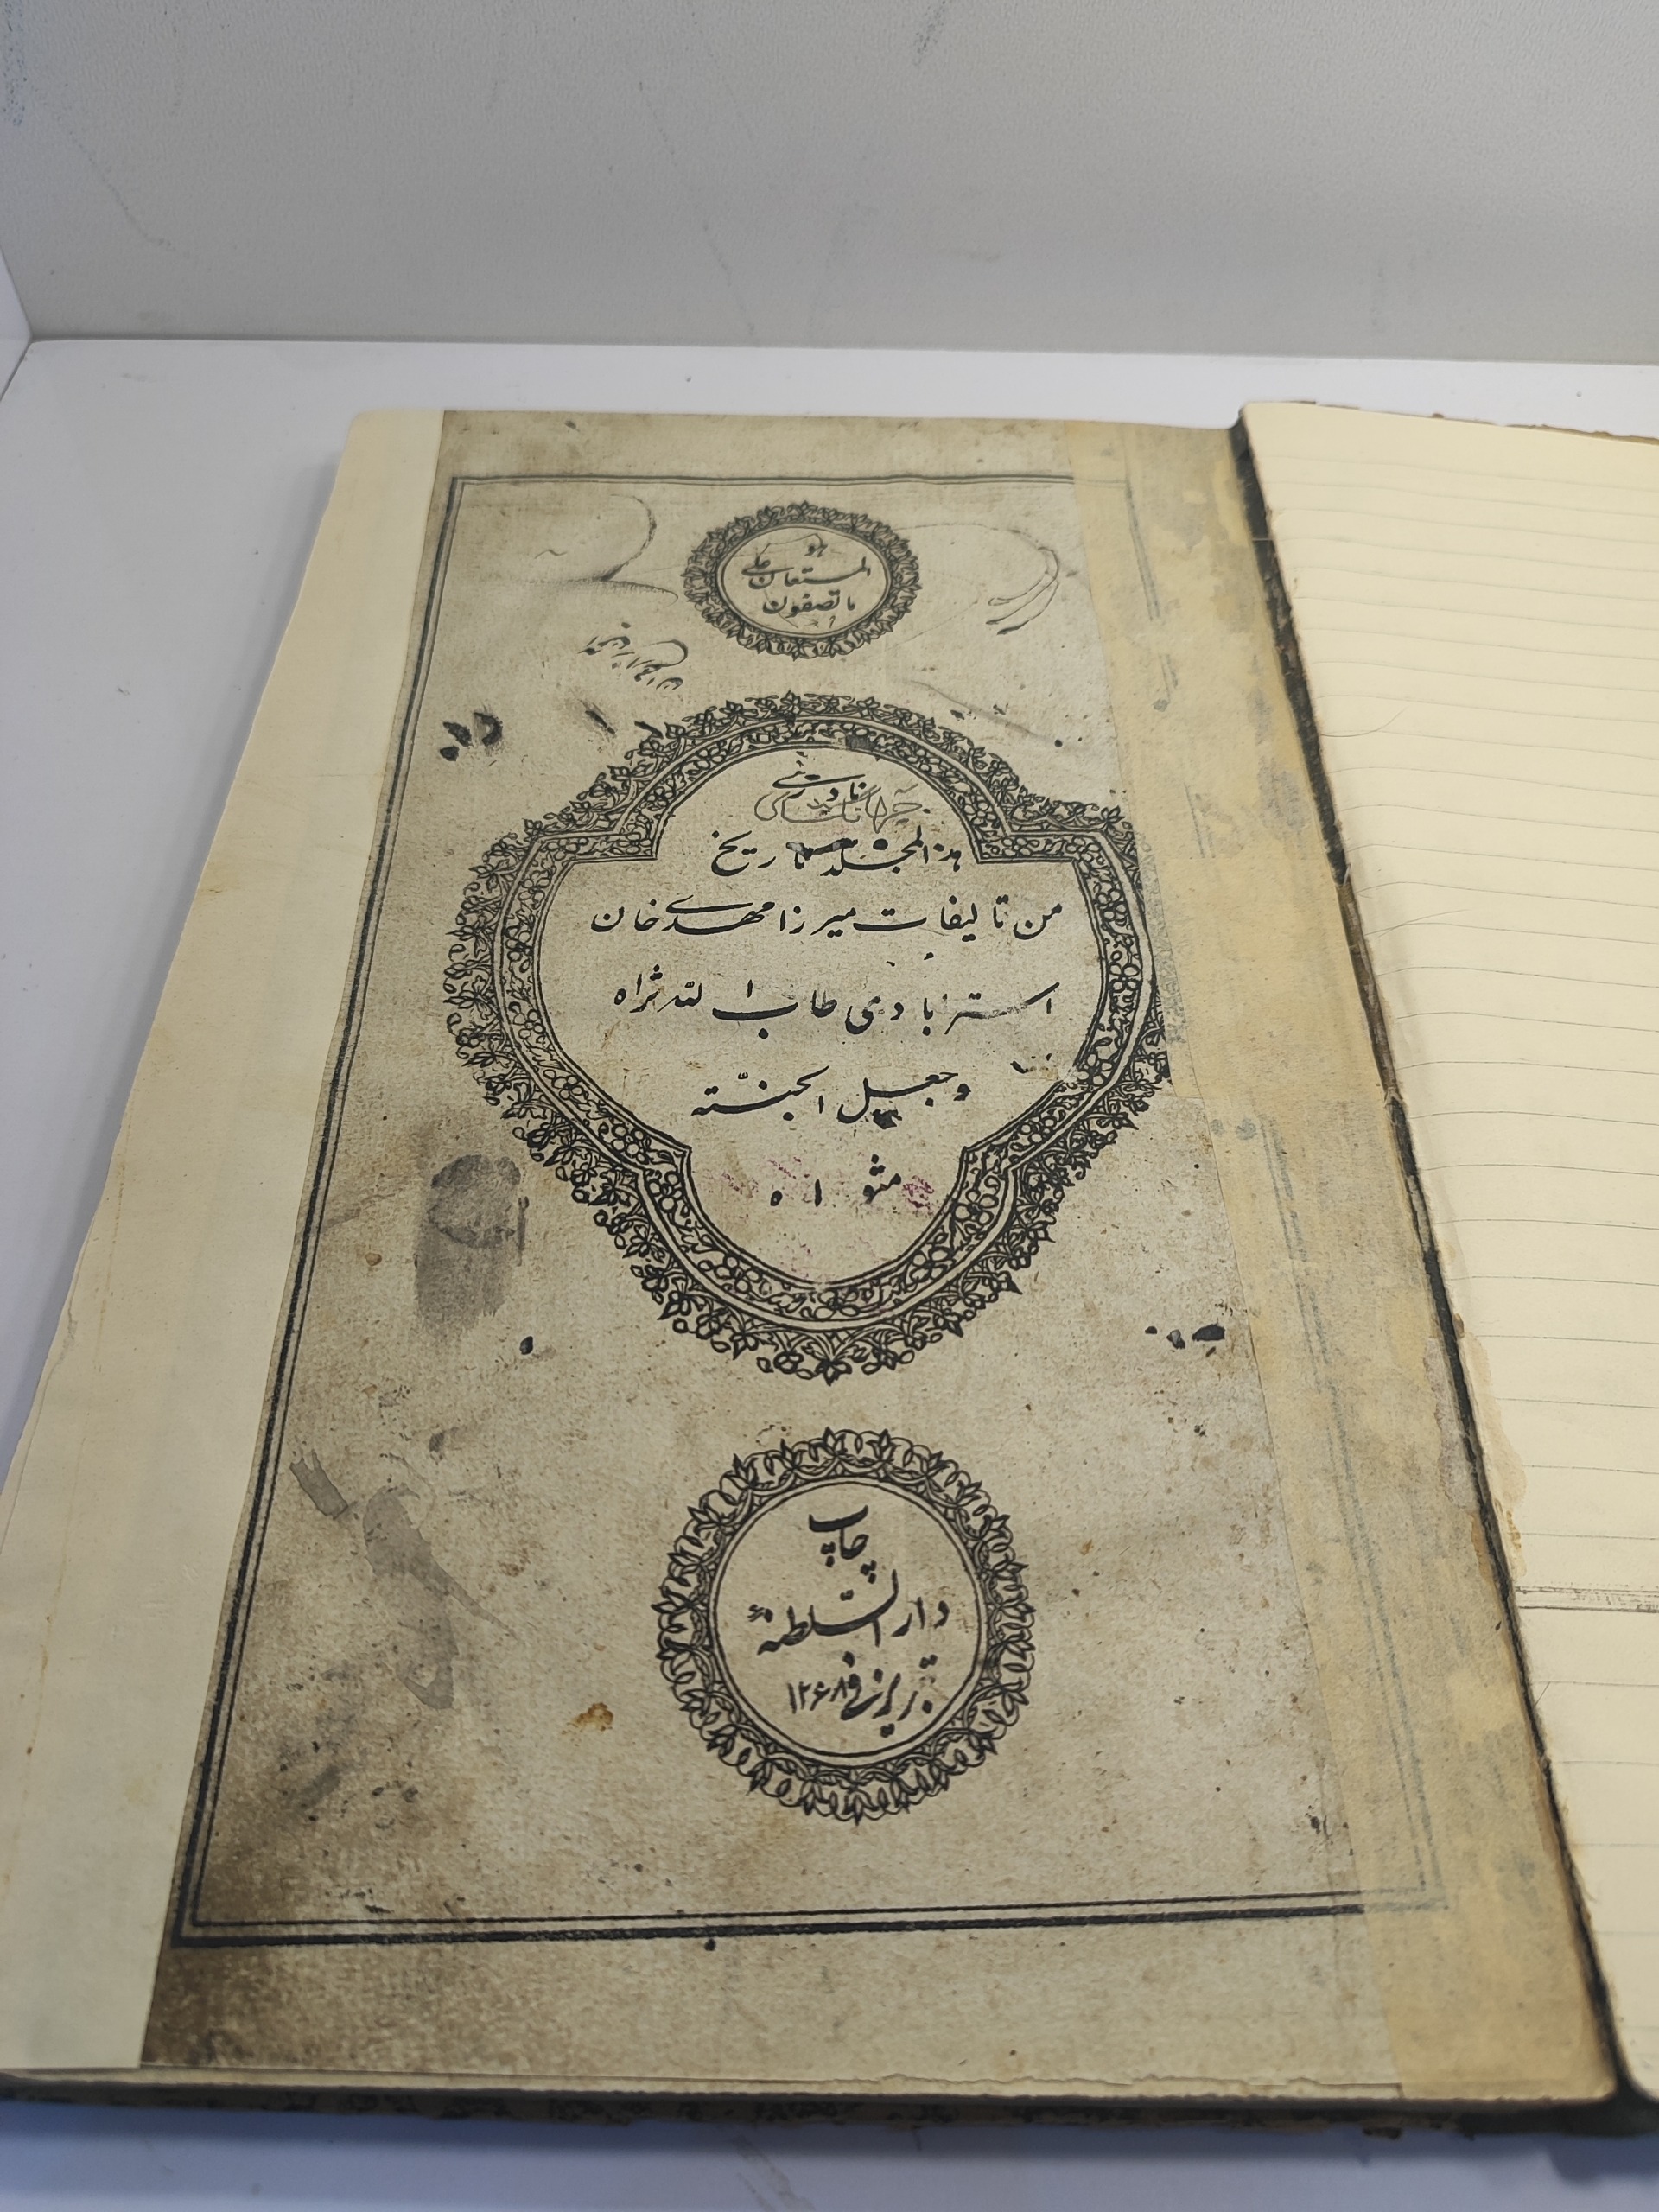 هو
المستعان علی
ما تصفون
نادری
جهانگشای
هذا المجلد تاریخ
من تالیفات میرزا مهدی خان
استرابادی طاب الله ثراه
وجعل الجنّته
مثواه
چاپ
دار السّلطنهٔ
تبریز فی ۱۲۶۸